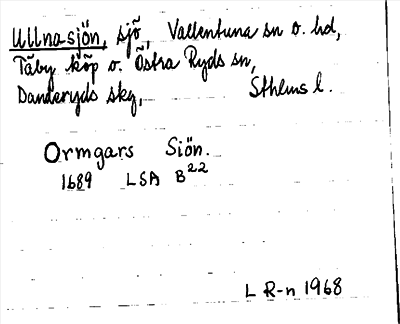 Ullna-sjön, sjö, Vallentuna sn o. hd,
Täby köp o. Östra Ryds sn,
Danderyds skg, Sthlms l.
Ormgars Siön.
1689 LSA B22
L R-n 1968